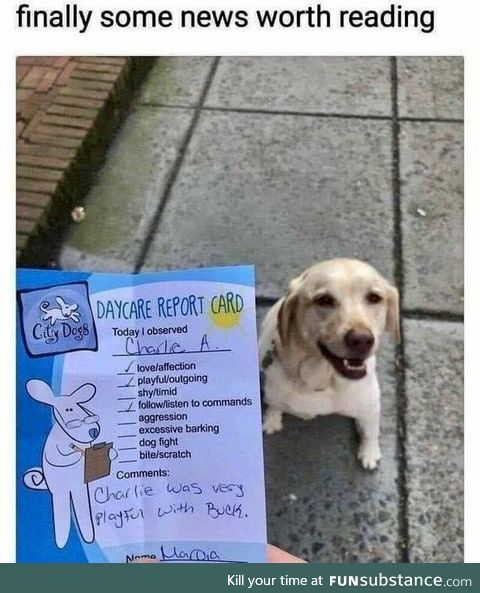 finally some news worth reading
City Dogs
DAYCARE REPORT CARD
Today I observed
Charlie A.
✓ love/affection
✓ playful/outgoing
shy/timid
✓ follow/listen to commands
aggression
excessive barking
dog fight
bite/scratch
Comments:
Charlie was very
playful with Buck.
Name Marcia
Kill your time at FUNsubstance.com